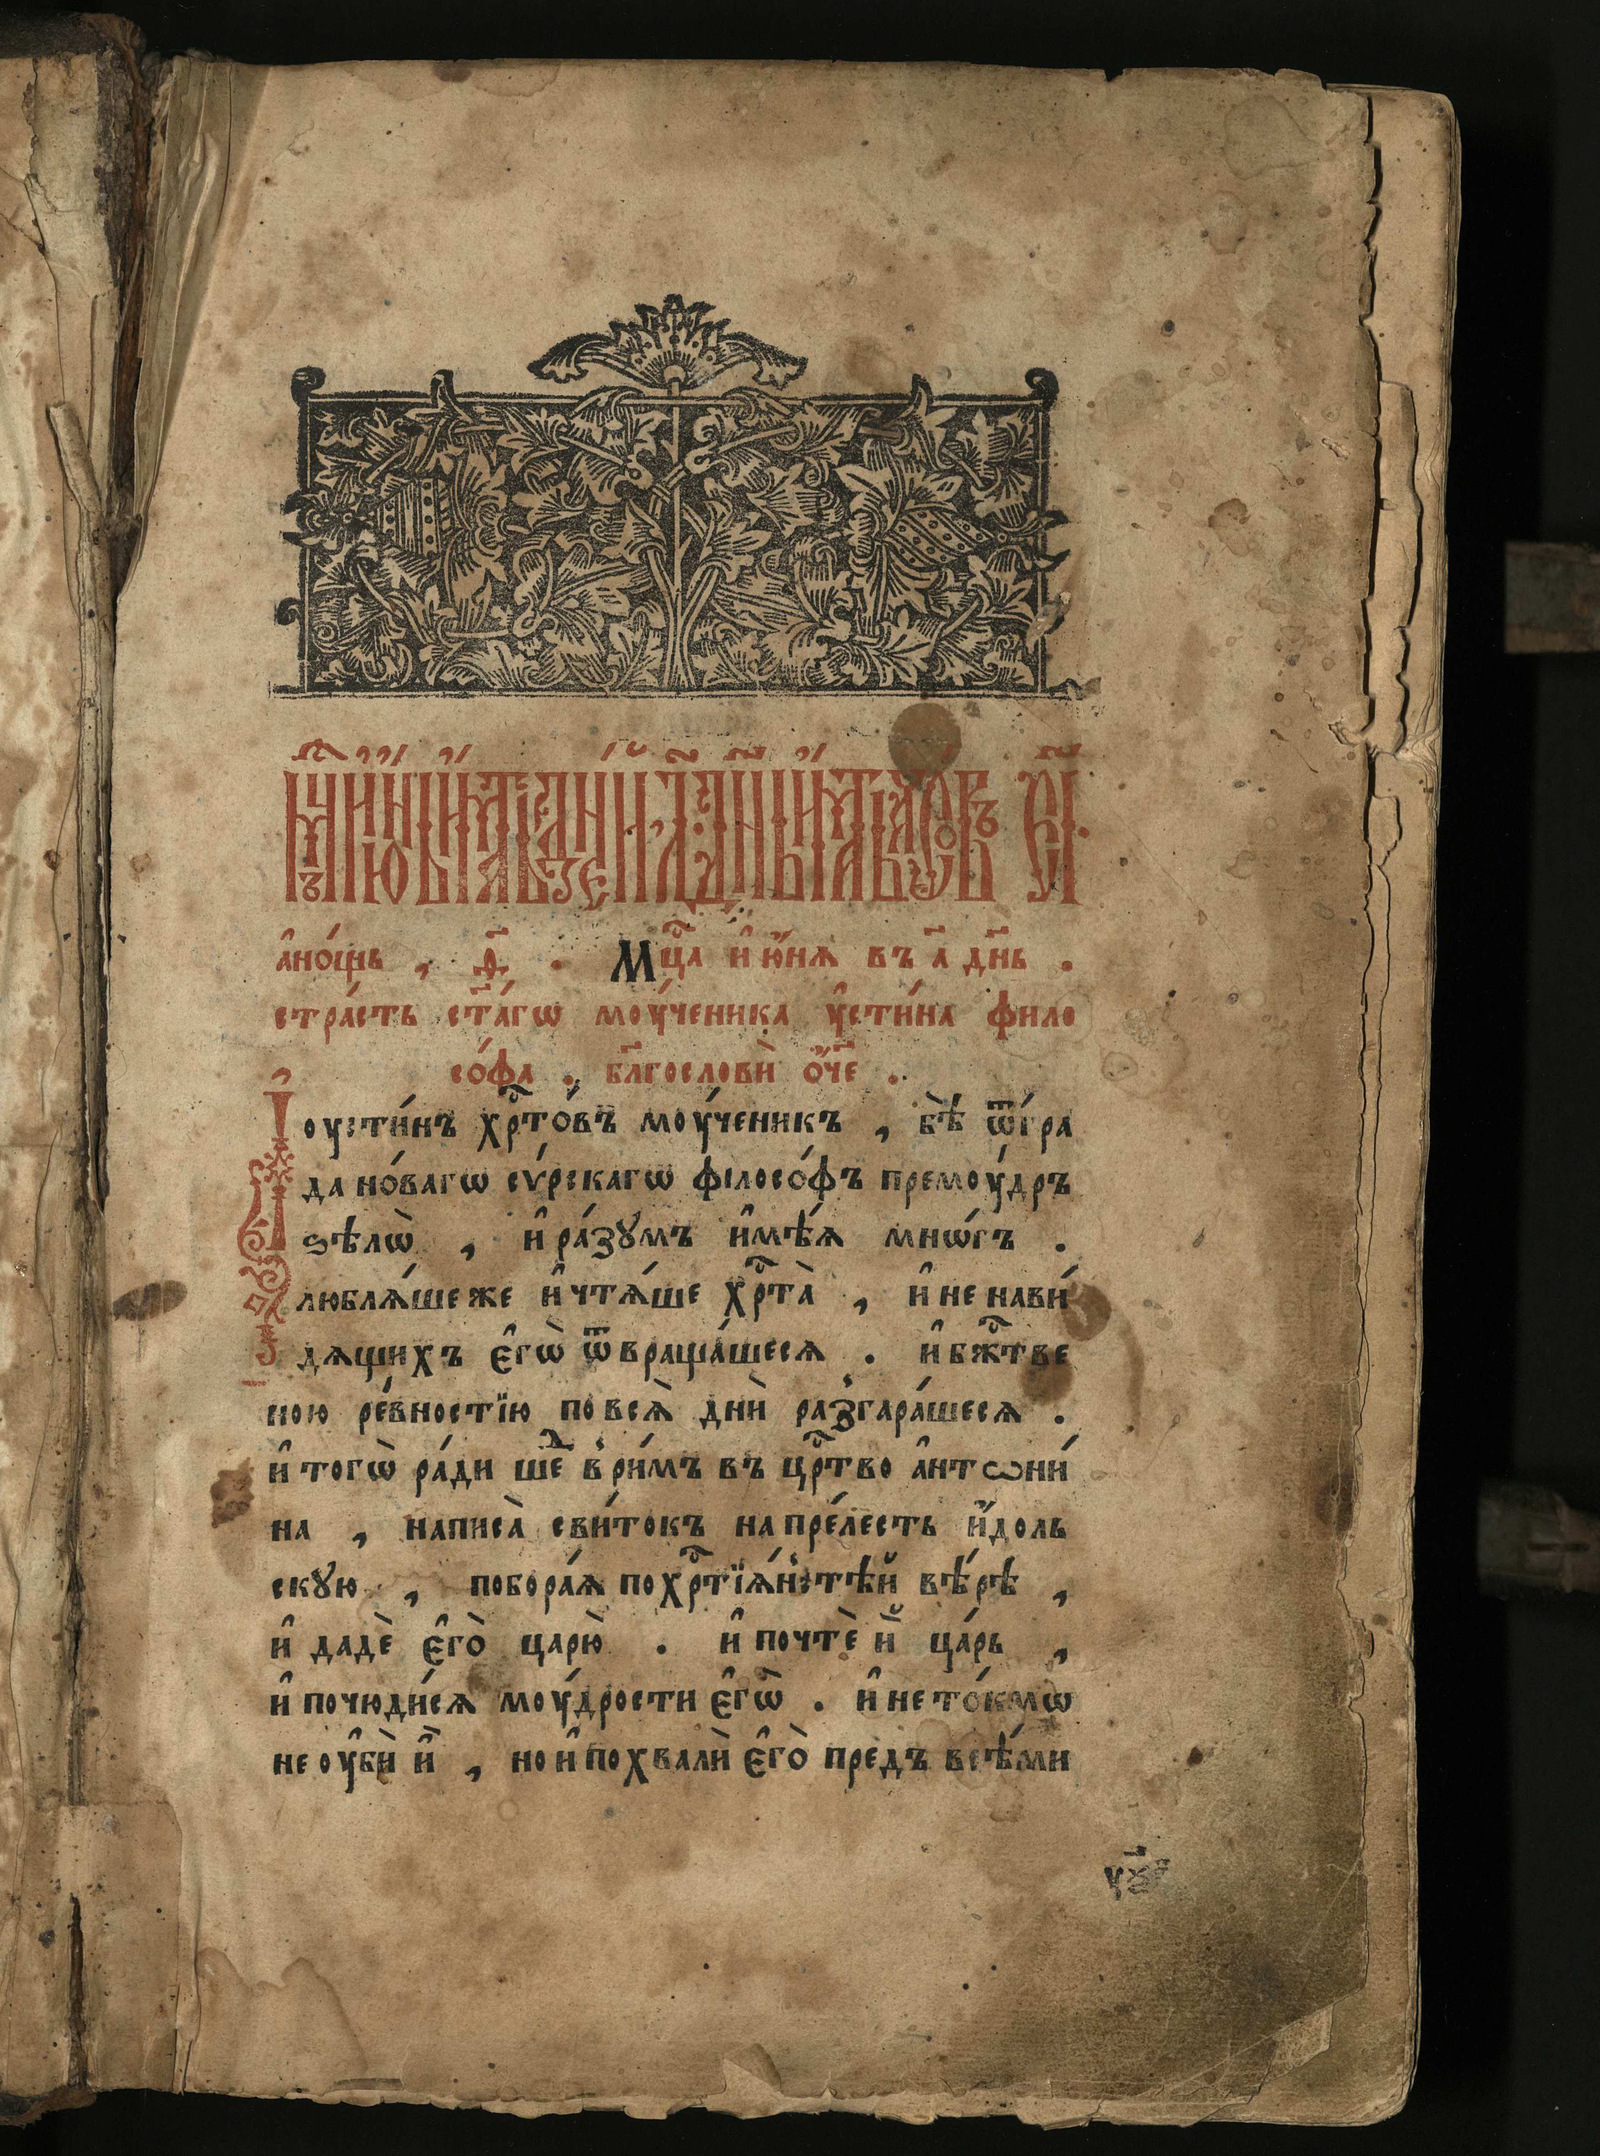 мц҇ъ и҆ю́нь и҆ма́ть дні́й л҃ . дн҃ь и҆ма́ть часо́въ є҃і .
а҆но́щь , ѳ҃ . Мцⷭ҇а и҆ю҆́нѧ въ а҃ дн҃ь .
стра́сть ст҃а́гѡ мѹ́ченика ѹ҆сти́на фило
со́фа . бл҃гослови̇̀ ѻ҆́ч҃е .
І҆оусти́нъ хрⷭ҇то́въ моу́ченикъ , бѣ̀ ѿгра́
да но́вагѡ сѵ́рскагѡ філосо́фъ премоу́дръ
ѕѣлѡ̀ , и҆ ра́зꙋмъ и҆мѣ́ѧ мнѡ́гъ .
люблѧ́ше же и҆ чтѧ́ше хрⷭ҇та̀ , и҆ не нави́
дѧщихъ є҆гѡ̀ ѿвраща́шесѧ . и҆ бжⷭ҇тве
ною ре́вностїю по всѧ̀ дни̇̀ разгара́шесѧ .
и҆ тогѡ̀ ра́ди шеⷣ в ри́мъ въ црⷭ҇тво а҆нтѡни́
на , написа̀ сви́токъ на пре́лесть и҆́доль
скꙋю , побора́ѧ по хрⷭ҇тїѧ́нстѣй вѣ́рѣ ,
и҆ дадѐ є҆го̀ царю̀ . и҆ почтѐ и҆̀ ца́рь ,
и҆ почюди́сѧ моу́дрости є҆гѡ̀ . и҆ не то́кмѡ
не оу҆би̇̀ и҆̀ , но и҆ похвали̇̀ є҆го̀ предъ всѣ́ми